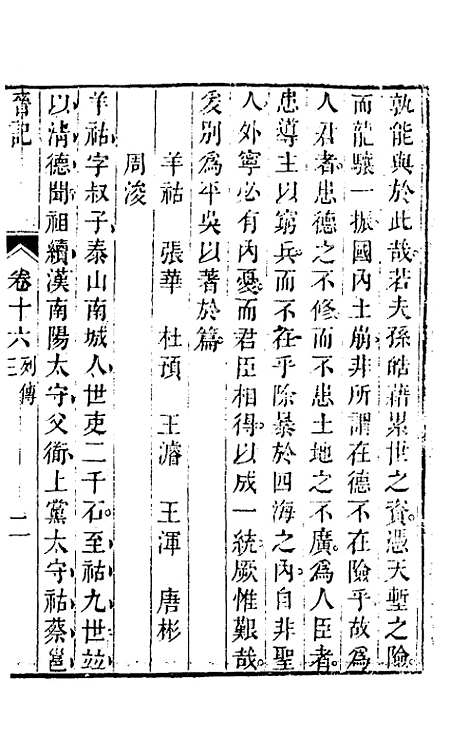 孰能與於此哉若夫孫皓藉累世之資憑天塹之險
而龍驤一振國內土崩非所謂在德不在險乎故為
人君者患德之不修而不患土地之不廣為人臣者
患導主以窮兵而不在乎除暴於四海之內自非聖
人外寧必有內憂而君臣相得以成一統厥惟艱哉
爰別為平吳以著於篇
羊祜 張華 杜預 王濬 王渾 唐彬
周浚
羊祜字叔子泰山南城人世吏二千石至祜九世竝
以清德聞祖續漢南陽太守父衜上黨太守祜蔡邕
晉記 卷十六 列傳三 二